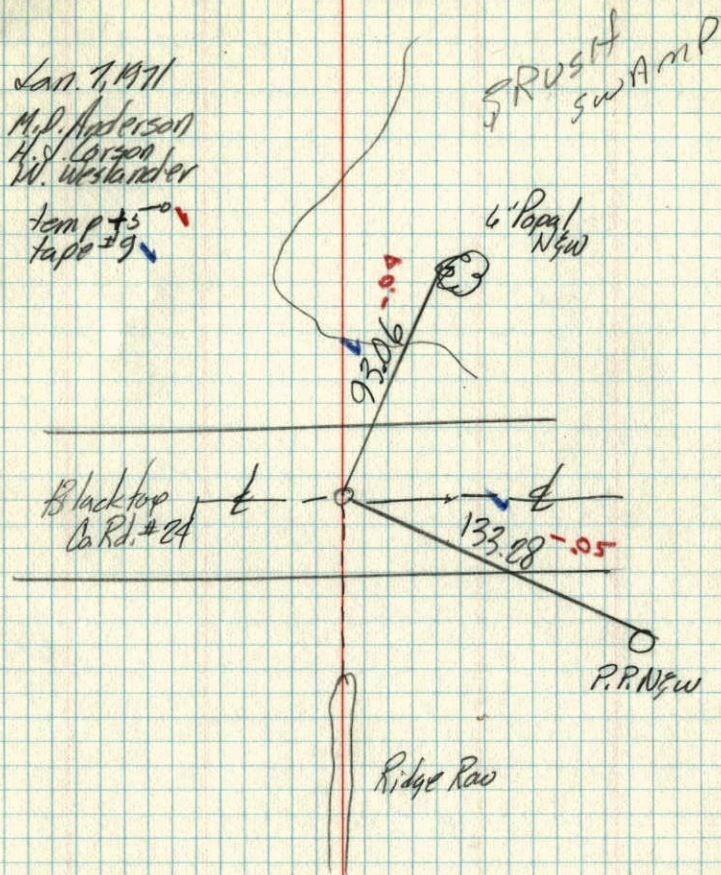 Jan. 7, 1971
M.D. Anderson
H.J. Carson
W. Weslander
temp +5°
tape #9
BRUSH
SWAMP
6" Popal
N&W
93.06
-.04
Blacktop
Co. Rd. #24
133.28 -.05
P.P. N&W
Ridge Row